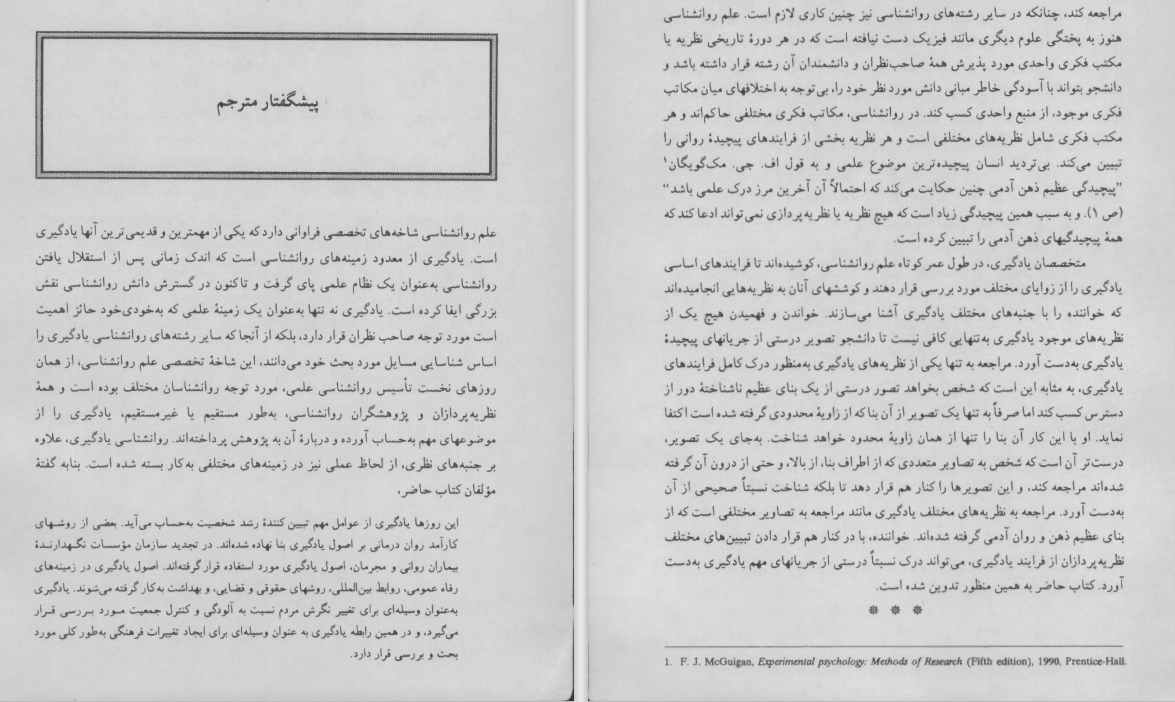 پیشگفتار مترجم
علم روانشناسی شاخه‌های تخصصی فراوانی دارد که یکی از مهمترین و قدیمی‌ترین آنها یادگیری
است. یادگیری از معدود زمینه‌های روانشناسی است که اندک زمانی پس از استقلال یافتن
روانشناسی به‌عنوان یک نظام علمی پای گرفت و تاکنون در گسترش دانش روانشناسی نقش
بزرگی ایفا کرده است. یادگیری نه تنها به‌عنوان یک زمینهٔ علمی که به‌خودی‌خود حائز اهمیت
است مورد توجه صاحب نظران قرار دارد، بلکه از آنجا که سایر رشته‌های روانشناسی یادگیری را
اساس شناسایی مسایل مورد بحث خود می‌دانند، این شاخهٔ تخصصی علم روانشناسی، از همان
روزهای نخست تأسیس روانشناسی علمی، مورد توجه روانشناسان مختلف بوده است و همهٔ
نظریه‌پردازان و پژوهشگران روانشناسی، به‌طور مستقیم یا غیرمستقیم، یادگیری را از
موضوعهای مهم به‌حساب آورده و دربارهٔ آن به پژوهش پرداخته‌اند. روانشناسی یادگیری، علاوه
بر جنبه‌های نظری، از لحاظ عملی نیز در زمینه‌های مختلفی به‌کار بسته شده است. بنابه گفتهٔ
مؤلفان کتاب حاضر،
این روزها یادگیری از عوامل مهم تبیین کنندهٔ رشد شخصیت به‌حساب می‌آید. بعضی از روشهای
کارآمد روان درمانی بر اصول یادگیری بنا نهاده شده‌اند. در تجدید سازمان مؤسسات نگهدارندهٔ
بیماران روانی و مجرمان، اصول یادگیری مورد استفاده قرار گرفته‌اند. اصول یادگیری در زمینه‌های
رفاه عمومی، روابط بین‌المللی، روشهای حقوقی و قضایی، و بهداشت به‌کار گرفته می‌شوند. یادگیری
به‌عنوان وسیله‌ای برای تغییر نگرش مردم نسبت به آلودگی و کنترل جمعیت مورد بررسی قرار
می‌گیرد، و در همین رابطه یادگیری به عنوان وسیله‌ای برای ایجاد تغییرات فرهنگی به‌طور کلی مورد
بحث و بررسی قرار دارد.
مراجعه کند، چنانکه در سایر رشته‌های روانشناسی نیز چنین کاری لازم است. علم روانشناسی
هنوز به پختگی علوم دیگری مانند فیزیک دست نیافته است که در هر دورهٔ تاریخی نظریه یا
مکتب فکری واحدی مورد پذیرش همهٔ صاحب‌نظران و دانشمندان آن رشته قرار داشته باشد و
دانشجو بتواند با آسودگی خاطر مبانی دانش مورد نظر خود را، بی‌توجه به اختلافهای میان مکاتب
فکری موجود، از منبع واحدی کسب کند. در روانشناسی، مکاتب فکری مختلفی حاکم‌اند و هر
مکتب فکری شامل نظریه‌های مختلفی است و هر نظریه بخشی از فرایندهای پیچیدهٔ روانی را
تبیین می‌کند. بی‌تردید انسان پیچیده‌ترین موضوع علمی و به قول اف. جی. مک‌گویگان۱
”پیچیدگی عظیم ذهن آدمی چنین حکایت می‌کند که احتمالاً آن آخرین مرز درک علمی باشد“
(ص ۱). و به سبب همین پیچیدگی زیاد است که هیچ نظریه یا نظریه‌پردازی نمی‌تواند ادعا کند که
همهٔ پیچیدگیهای ذهن آدمی را تبیین کرده است.
متخصصان یادگیری، در طول عمر کوتاه علم روانشناسی، کوشیده‌اند تا فرایندهای اساسی
یادگیری را از زوایای مختلف مورد بررسی قرار دهند و کوششهای آنان به نظریه‌هایی انجامیده‌اند
که خواننده را با جنبه‌های مختلف یادگیری آشنا می‌سازند. خواندن و فهمیدن هیچ یک از
نظریه‌های موجود یادگیری به‌تنهایی کافی نیست تا دانشجو تصویر درستی از جریانهای پیچیدهٔ
یادگیری به‌دست آورد. مراجعه به تنها یکی از نظریه‌های یادگیری به‌منظور درک کامل فرایندهای
یادگیری، به مثابه این است که شخص بخواهد تصور درستی از یک بنای عظیم ناشناختهٔ دور از
دسترس کسب کند اما صرفاً به تنها یک تصویر از آن بنا که از زاویهٔ محدودی گرفته شده است اکتفا
نماید. او با این کار آن بنا را تنها از همان زاویهٔ محدود خواهد شناخت. به‌جای یک تصویر،
درست‌تر آن است که شخص به تصاویر متعددی که از اطراف بنا، از بالا، و حتی از درون آن گرفته
شده‌اند مراجعه کند، و این تصویرها را کنار هم قرار دهد تا بلکه شناخت نسبتاً صحیحی از آن
به‌دست آورد. مراجعه به نظریه‌های مختلف یادگیری مانند مراجعه به تصاویر مختلفی است که از
بنای عظیم ذهن و روان آدمی گرفته شده‌اند. خواننده، با در کنار هم قرار دادن تبیین‌های مختلف
نظریه‌پردازان از فرایند یادگیری، می‌تواند درک نسبتاً درستی از جریانهای مهم یادگیری به‌دست
آورد. کتاب حاضر به همین منظور تدوین شده است.
* * *
1. F. J. McGuigan, Experimental psychology: Methods of Research (Fifth edition), 1990, Prentice-Hall.